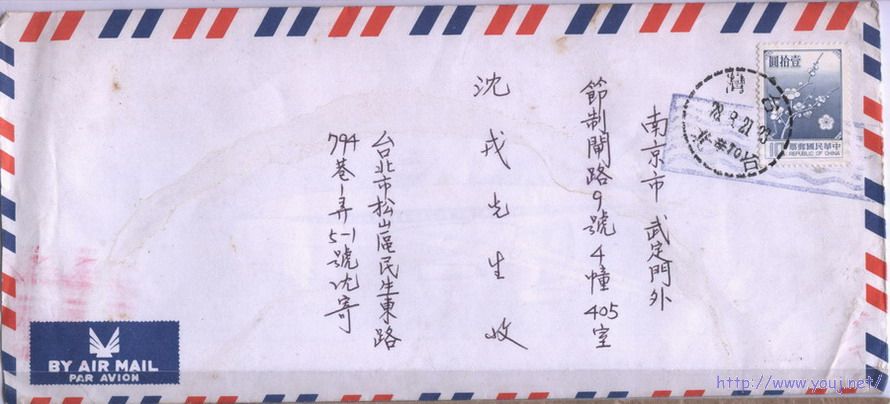 壹拾圓
中華民國郵票
REPUBLIC OF CHINA
10
台灣
78.9.21.23
台北
#70
南京市 武定門外
節制閘路9號4幢405室
沈戎先生收
台北市松山區民生東路
794巷1弄5-1號沈寄
BY AIR MAIL
PAR AVION
http://www.youj.net/